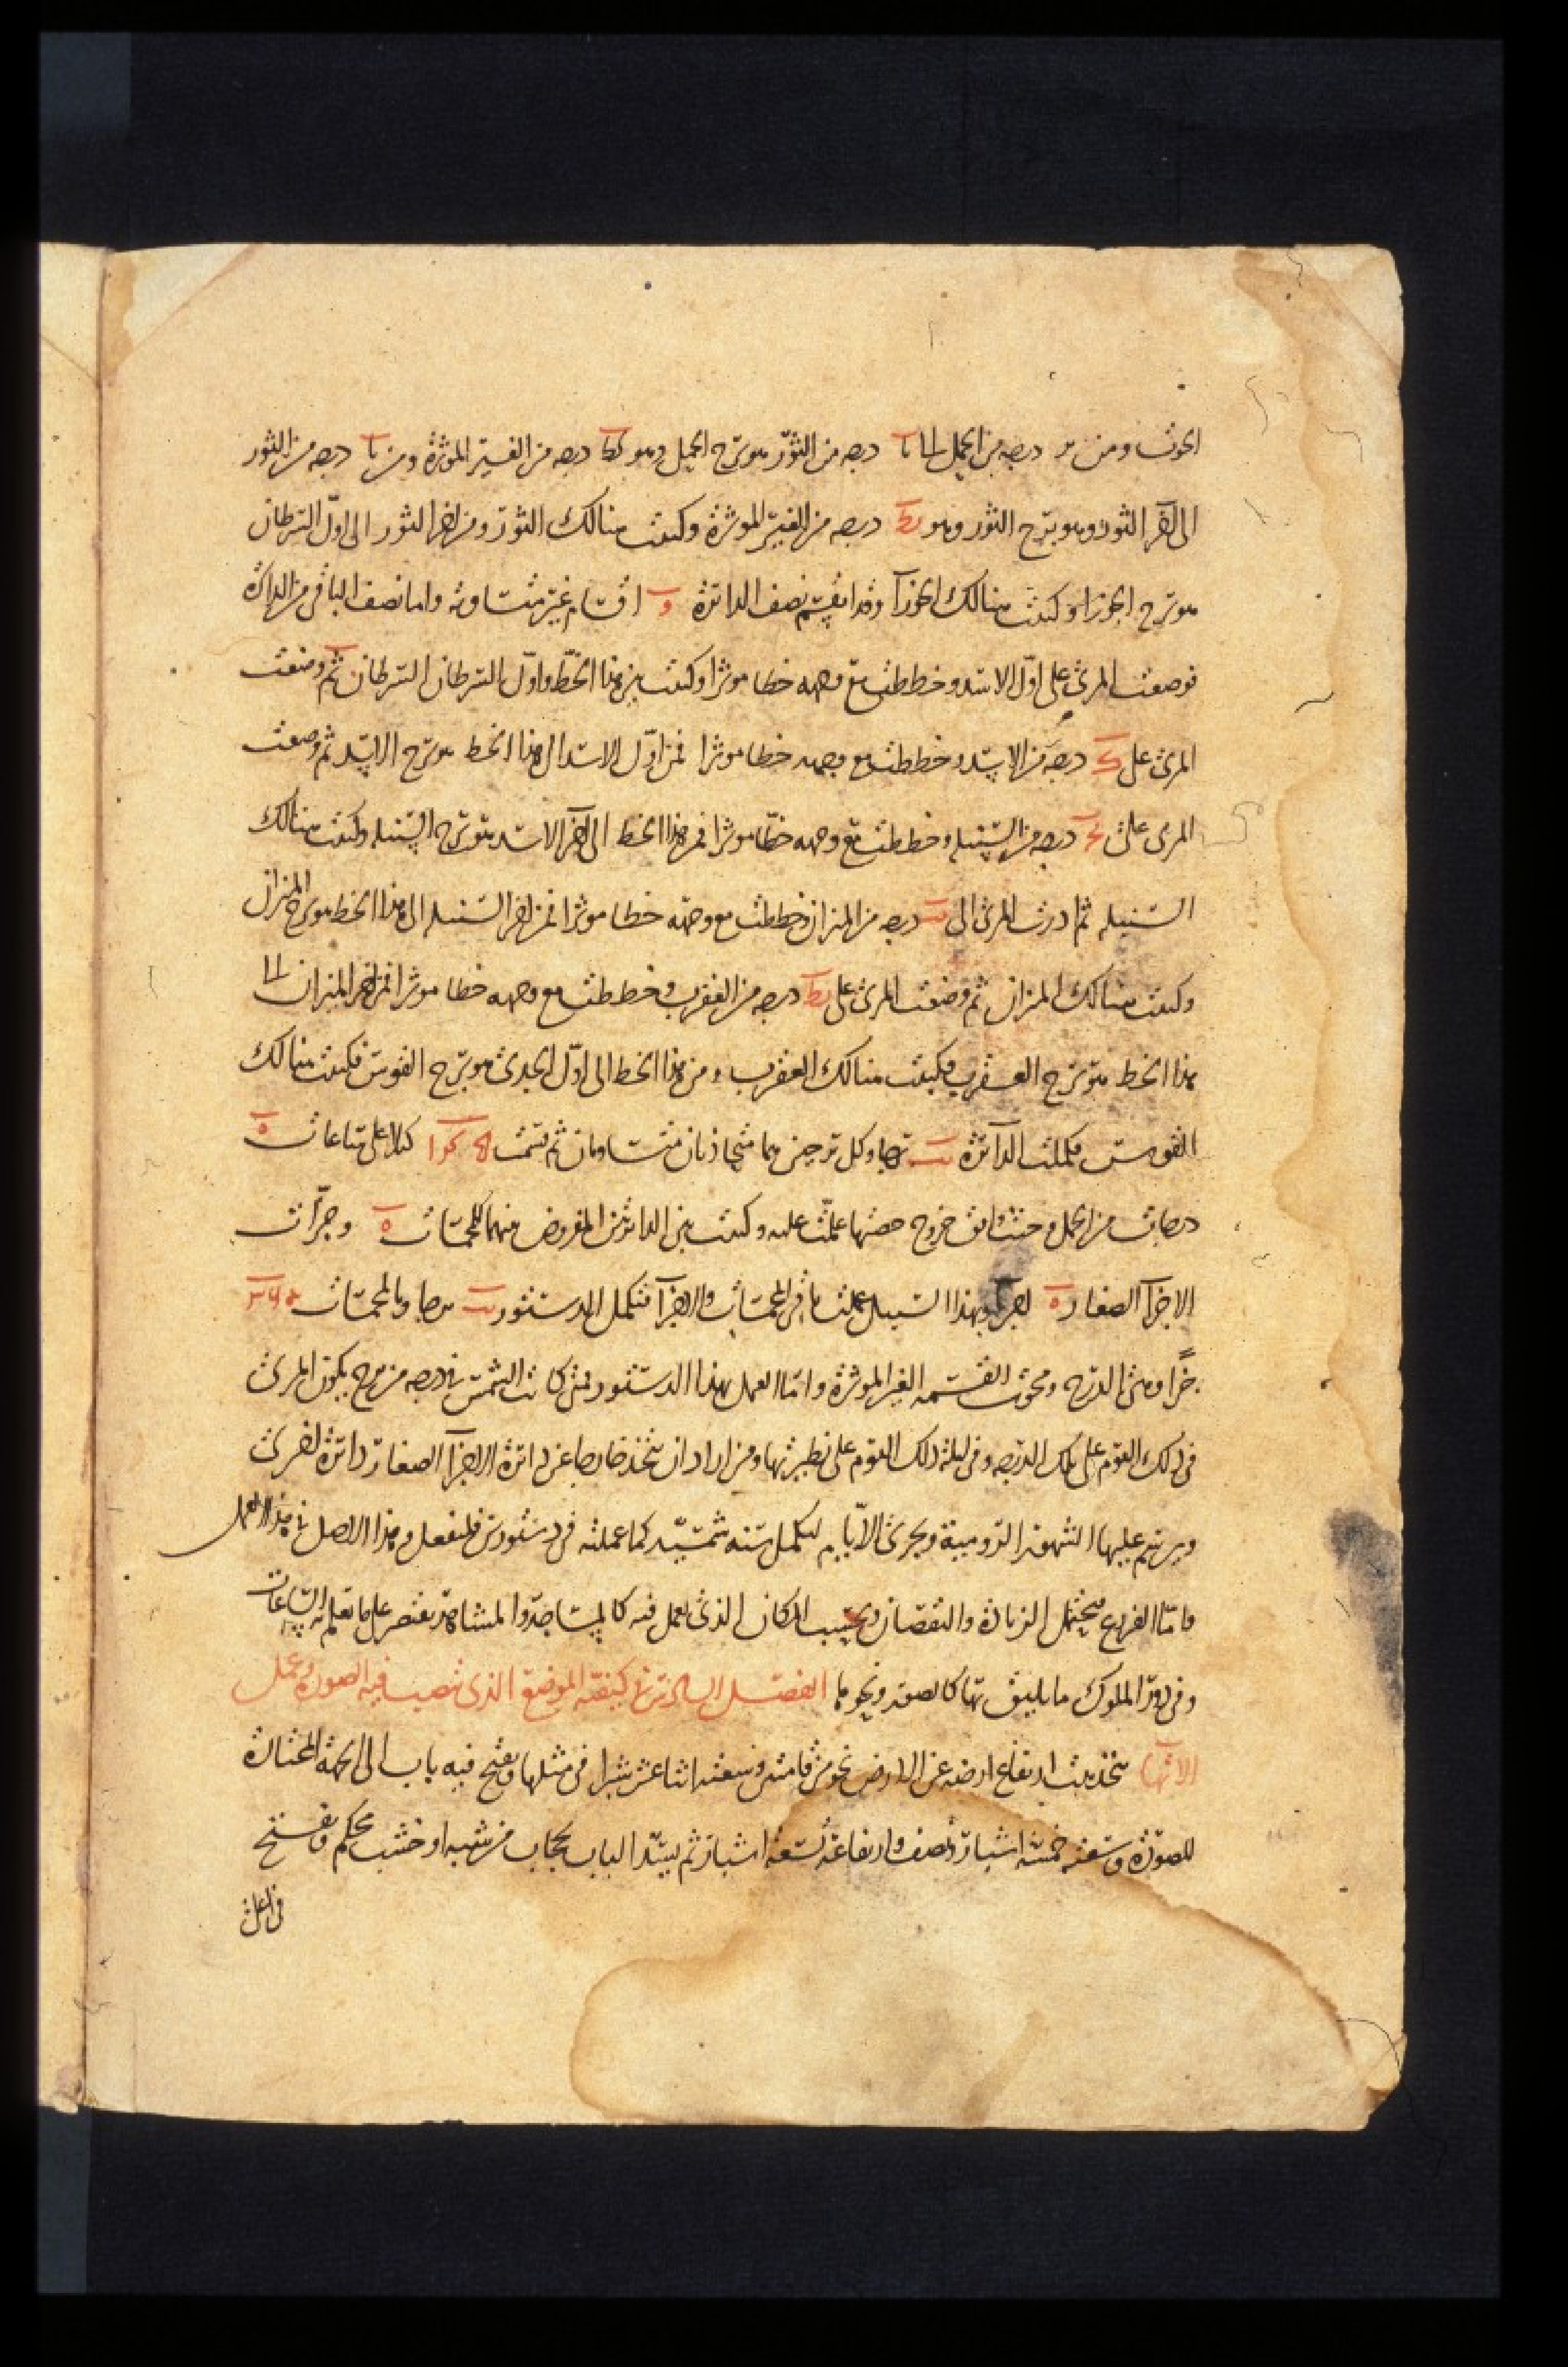 الحوت ومن درجه من الحمل الى يا درجه من الثور هو برج الحمل وهو كط درجه من الغير الموثرة ومن يا درجه من الثور
الى اخر الثور وهو برج الثور وهو يط درجه من الغير الموثرة وكتبت هنالك الثور ومن اخر الثور الى اول السرطان
هو برج الجوزا وكتبت هنالك الجوزآ وقد انقسم نصف الدائرة و اقسام غير متساوية واما نصف الباقي من الدائرة
فوضعت المرى على اول الاسد وخططت مع وجهه خطا موثرا وكتبت بين هذا الخط واول السرطان السرطان ثم وضعت
المرى على درجه من الاسد وخططت مع وجهه خطا موثرا فمن اول الاسد الى هذا الخط هو برج الاسد ثم وضعت
المرى على درجه من السنبله وخططت مع وجهه خطا موثرا فمن هذا الخط الى اخر الاسد هو برج السنبله وكتبت هنالك
السنبله ثم ادرت المرى الى درجه من الميزان وخططت مع وجهه خطا موثرا فمن اخر السنبله الى هذا الخط هو برج الميزان
وكتبت هنالك الميزان ثم وضعت المرى على يط درجه من العقرب وخططت مع وجهه خطا موثرا فمن اخر الميزان الى
هذا الخط هو برج العقرب فكتبت هنالك العقرب ومن هذا الخط الى اول الجدى هو برج القوس فكتبت هنالك
القوس فكملت الدآئرة يب برجا وكل برجين وهما متحاذيان متساويان ثم قسمت كلا على ساعات ه
درجات من الحمل وحيث وافق خروج حصتها علمت عليه وكتبت بين الدائرتين المفروض منهما للخمسات ه وجزأت
الاجزآ الصغار ه اجزآ وبهذا السبيل عملت باقى الخمسات والاجزآ فتكمل الدستور يب برجا وبالخمسات
جزا وهى الدرج ومحوت القسمه الغير الموثرة واما العمل بهذا الدستور فمتى كانت الشمس فى درجه من برج يكون المرى
فى ذلك اليوم على تلك الدرجه وفى ليلة ذلك اليوم على نظيرتها ومن اراد ان يتخذ خارجا عن دائرة الاجزآ الصغار دائرة اخرى
ويرسم عليها الشهور الرومية ويجرى الايام لتكمل سنه شمسيه كما عملته فى دستورى فليفعل وهذا الاصل فى هذا العمل
فاما الفروع فيحتمل الزيادة والنقصان وبحسب المكان الذى يعمل فيه كالمساجد والمشاهد يقتصر على ما تعلم به الساعات
وفى دور الملوك ما يليق بها كالصور ونحوها الفصل السادس فى كيفية الموضع الذى تنصب فيه الصور وعمل
الاتها يتخذ بيت ارتفاع ارضه عن الارض نحو من قامتين وسعته اثنا عشر شبرا فى مثلها ويفتح فيه باب الى الجهة المختارة
للصورة وسعته خمسة اشبار ونصف وارتفاعه تسعة اشبار ثم يسد الباب بحجاب من شبه او خشب محكم ويفتح
فى اعلى